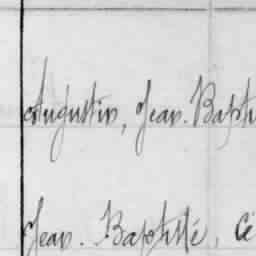 Augustin, Jean. Baptis
Jean. Baptisté, Cé